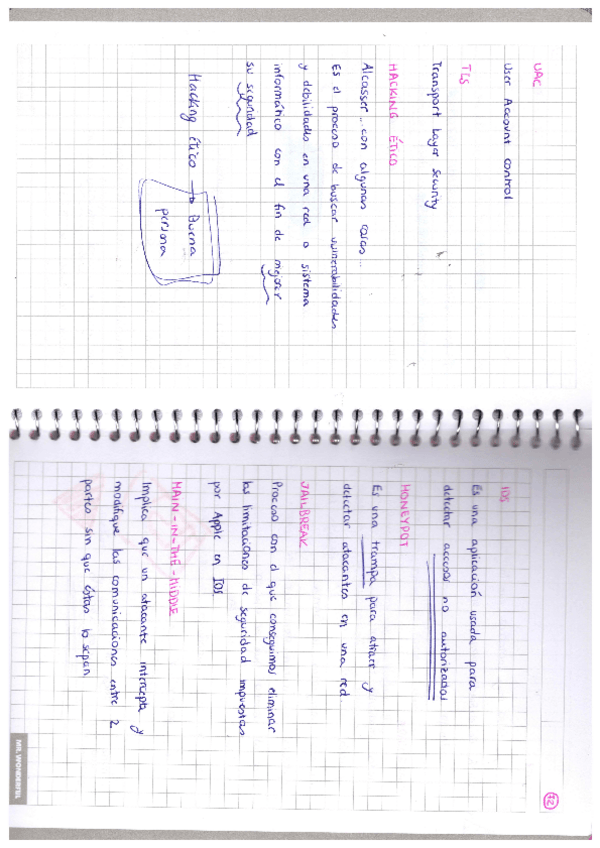 UAC
User Account control
TLS
Transport Layer Security
HACKING ÉTICO
Alcasser... con algunas cosas...
Es el proceso de buscar vulnerabilidades
y debilidades en una red o sistema
informático con el fin de mejorar
su seguridad
Hacking ético → Buena
persona
72
IDS
Es una aplicación usada para
detectar accesos no autorizados
HONEYPOT
Es una trampa para atraer y
detectar atacantes en una red
JAILBREAK
Proceso con el que conseguimos eliminar
las limitaciones de seguridad impuestas
por Apple en IOS
MAIN-IN-THE-MIDDLE
Implica que un atacante intercepta y
modifique las comunicaciones entre 2
partes sin que éstas lo sepan
MR. WONDERFUL